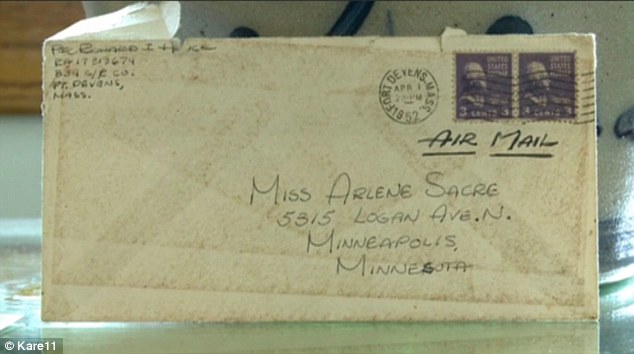 RA17 213674
FT. DEVENS,
MASS.
FORT DEVENS, MASS.
APR 1
PM
1952
UNITED STATES
CENTS
UNITED STATES
CENTS
AIR MAIL
MISS ARLENE SACRE
5315 LOGAN AVE. N.
MINNEAPOLIS,
MINNESOTA
© Kare11